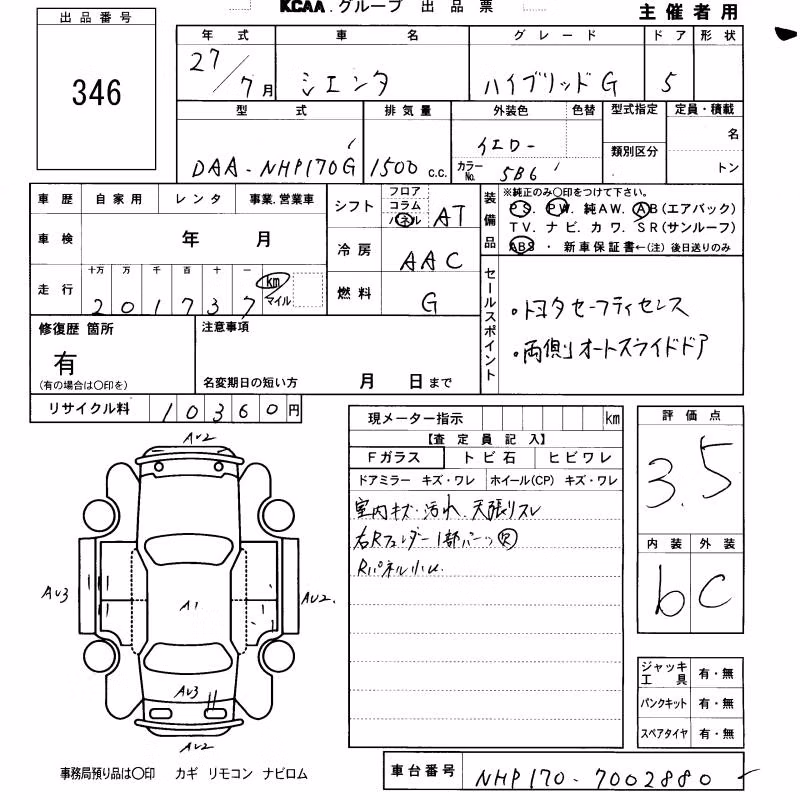 KCAA.グループ 出品票
主催者用
出品番号
346
年式 車名 グレード ドア 形状
27/7月 シエンタ ハイブリッドG 5
型式 排気量 外装色 色替 型式指定 定員・積載
DAA-NHP170G 1500 c.c. イエロー 名
カラーNo. 5B6 類別区分 トン
車歴 自家用 レンタ 事業.営業車
シフト フロア コラム パネル AT
車検 年 月
冷房 AAC
走行 十万 万 千 百 十 一
201737 km マイル
燃料 G
装備品
※純正のみ○印をつけて下さい。
PS. PW. 純AW. AB(エアバック)
TV. ナビ. カワ. SR(サンルーフ)
ABS ・ 新車保証書←(注) 後日送りのみ
セールスポイント
・トヨタセーフティセンス
・両側オートスライドドア
修復歴 箇所
有
(有の場合は○印を)
注意事項
名変期日の短い方 月 日まで
リサイクル料 10360円
現メーター指示 km
【査定員記入】
Fガラス トビ石 ヒビワレ
ドアミラー キズ・ワレ ホイール(CP) キズ・ワレ
室内キズ・汚れ.天張リスレ
Rパネル小U.
評価点
3.5
内装 外装
b C
AU2
AU3 A1 AU2.
AU3
AU2
ジャッキ工具 有・無
パンクキット 有・無
スペアタイヤ 有・無
事務局預り品は○印 カギ リモコン ナビロム
車台番号 NHP170-7002880